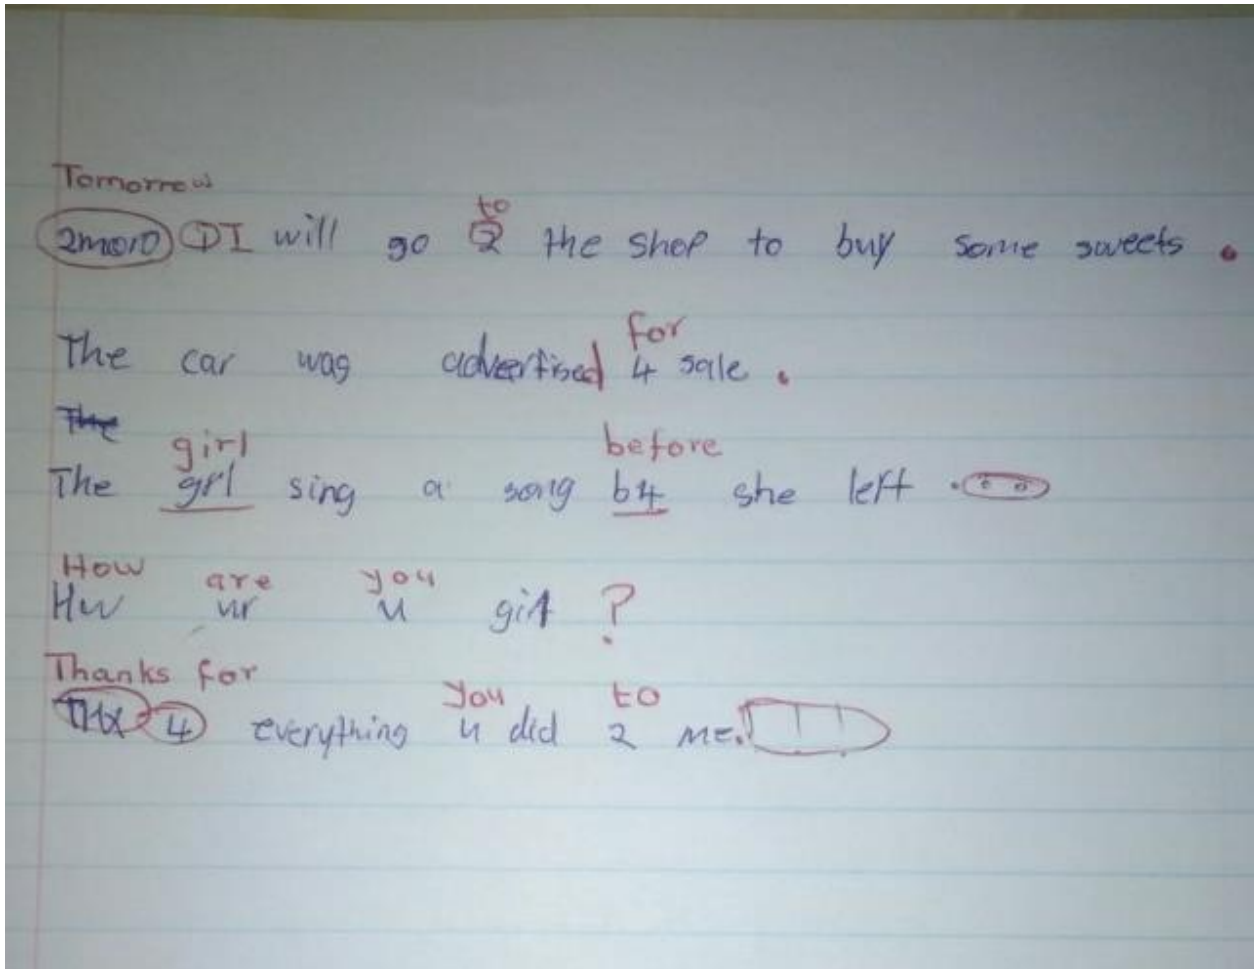 Tomorrow
to
2moro I will go 2 the shop to buy some sweets .
for
The car was advertised 4 sale .
The
girl before
The grl sing a song b4 she left .
How are you
Hw ur u girl ?
Thanks for
you to
THX 4 everything u did 2 me.